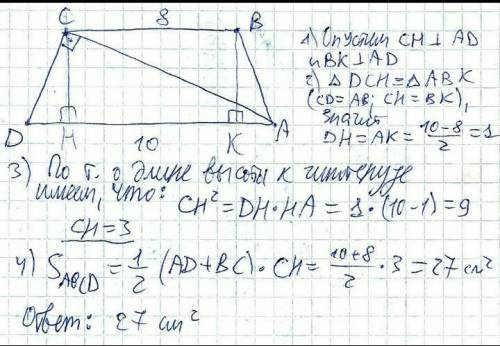 C 8 B
D H 10 K A
1) Опустим CH ⊥ AD
и BK ⊥ AD
2) △ DCH = △ ABK
(CD = AB; CH = BK),
значит
DH = AK = (10-8)/2 = 1
3) По т. о длине высоты к гипотенузе
имеем, что: CH² = DH·HA = 1·(10-1) = 9
CH = 3
4) S_ABCD = 1/2 (AD + BC)·CH = (10+8)/2 · 3 = 27 см²
Ответ: 27 см²